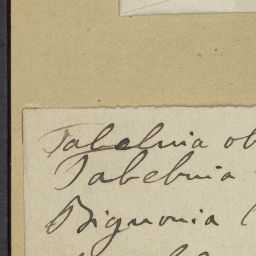 Tabebuia ob
Tabebuia
Bignonia (